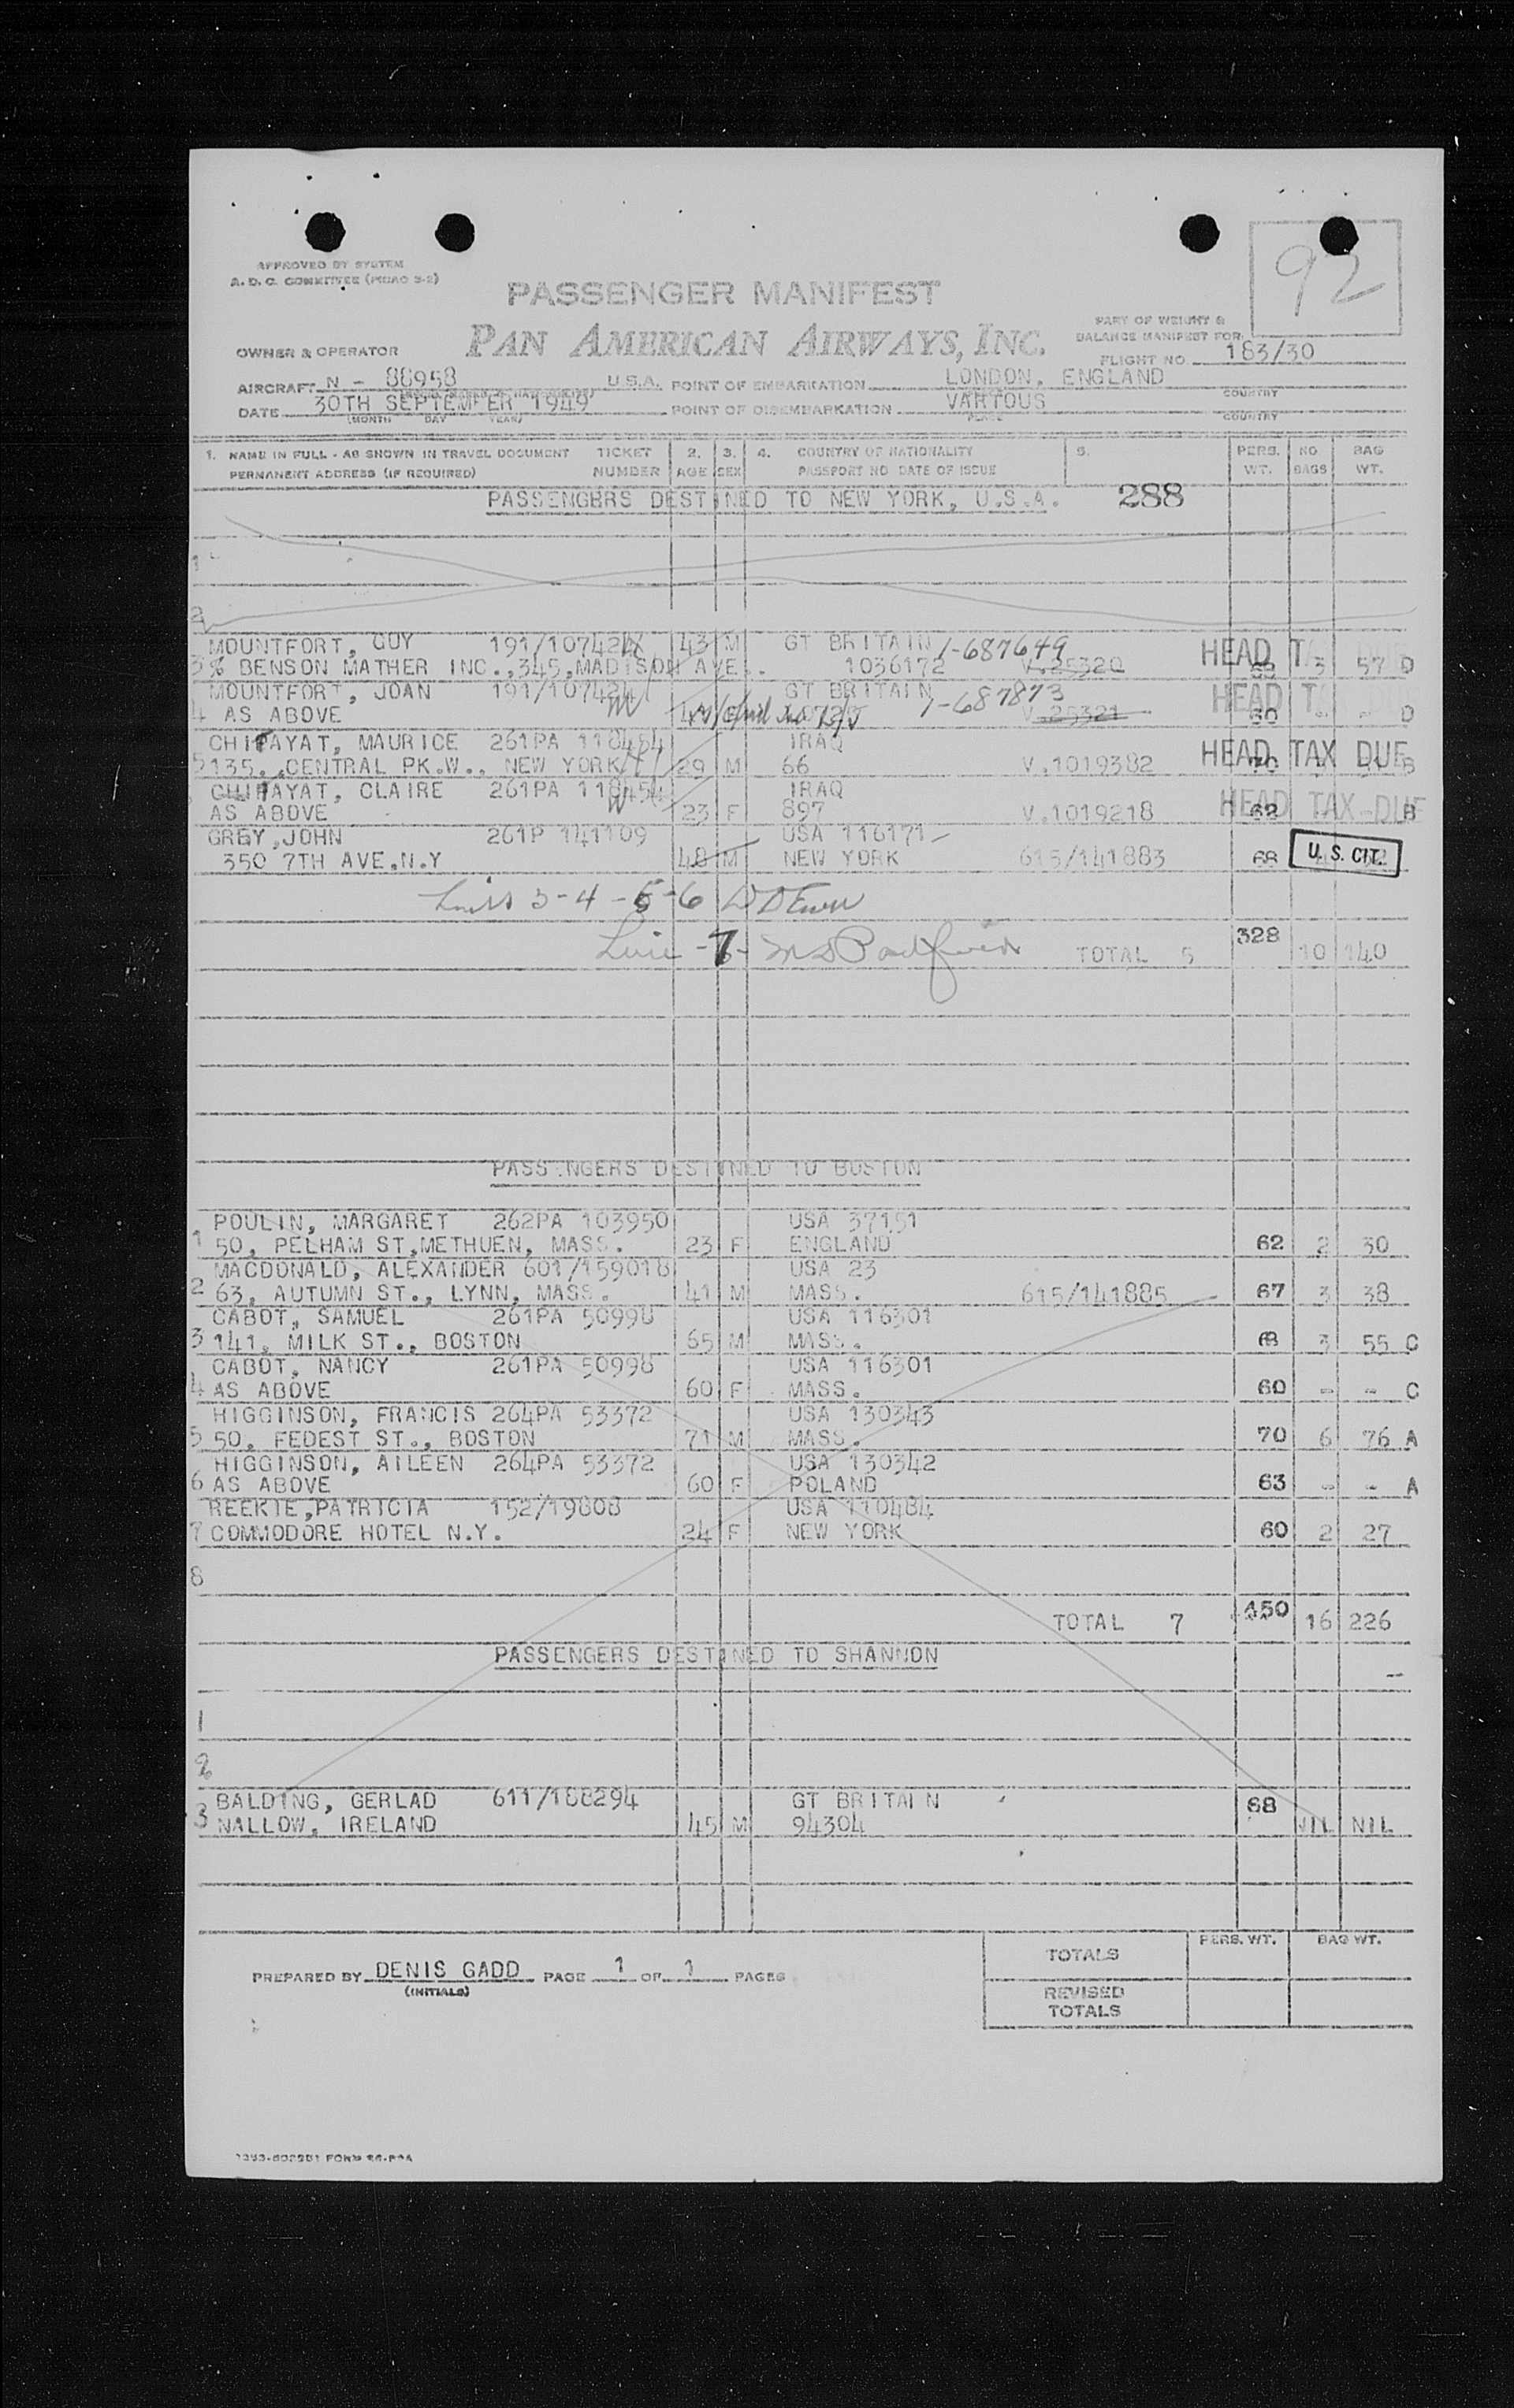 APPROVED BY SYSTEM
A. D. C. COMMITTEE (PICAO 3-2)
92
PASSENGER MANIFEST
PAN AMERICAN AIRWAYS, INC.
PART OF WEIGHT &
BALANCE MANIFEST FOR:
OWNER & OPERATOR
FLIGHT NO. 183/30
AIRCRAFT N - 88958 U.S.A. POINT OF EMBARKATION LONDON, ENGLAND
COUNTRY
DATE 30TH SEPTEMFER 1949 POINT OF DISEMBARKATION VARIOUS
(MONTH DAY YEAR) PLACE COUNTRY
1. NAME IN FULL - AS SHOWN IN TRAVEL DOCUMENT TICKET 2. 3. 4. COUNTRY OF NATIONALITY 5. PERS. NO BAG
PERMANENT ADDRESS (IF REQUIRED) NUMBER AGE SEX PASSPORT NO DATE OF ISSUE WT. BAGS WT.
PASSENGERS DESTINED TO NEW YORK, U.S.A. 288
1
2
MOUNTFORT, GUY 191/107424 43 M GT BRITAIN 1-687649 HEAD T
3 % BENSON MATHER INC.,345,MADISON AVE.. 1036172 V.25320 68 3 57 D
MOUNTFORT, JOAN 191/107424 GT BRITAIN 1-687873 HEAD T
4 AS ABOVE V.25321 60 - - D
CHITAYAT, MAURICE 261PA 118454 IRAQ HEAD TAX DUE
5 135. CENTRAL PK.W., NEW YORK 29 M 66 V.1019382 70 B
CHITAYAT, CLAIRE 261PA 118454 IRAQ HEAD TAX DUE
AS ABOVE 23 F 897 V.1019218 62 B
GREY,JOHN 261P 141109 USA 116171
350 7TH AVE.N.Y 48 M NEW YORK 615/141883 68 U.S. CIT.
3-4-5-6
7 TOTAL 5 328 10 140
PASSENGERS DESTINED TO BOSTON
POULIN, MARGARET 262PA 103950 USA 37151
1 50, PELHAM ST,METHUEN, MASS. 23 F ENGLAND 62 2 30
MACDONALD, ALEXANDER 601/159018 USA 23
2 63, AUTUMN ST., LYNN, MASS. 41 M MASS. 615/141885 67 3 38
CABOT, SAMUEL 261PA 50998 USA 116301
3 141, MILK ST., BOSTON 65 M MASS. 68 3 55 C
CABOT, NANCY 261PA 50998 USA 116301
4 AS ABOVE 60 F MASS. 60 - - C
HIGGINSON, FRANCIS 264PA 53372 USA 130343
5 50, FEDEST ST., BOSTON 71 M MASS. 70 6 76 A
HIGGINSON, AILEEN 264PA 53372 USA 130342
6 AS ABOVE 60 F POLAND 63 - - A
REEKIE,PATRICIA 152/19808 USA 110484
7 COMMODORE HOTEL N.Y. 24 F NEW YORK 60 2 27
8
TOTAL 7 450 16 226
PASSENGERS DESTINED TO SHANNON
1
2
BALDING, GERLAD 611/188294 GT BRITAIN
3 NALLOW, IRELAND 45 M 94304 68 NIL NIL
TOTALS PERS. WT. BAG WT.
PREPARED BY DENIS GADD PAGE 1 OF 1 PAGES
(INITIALS)
REVISED
TOTALS